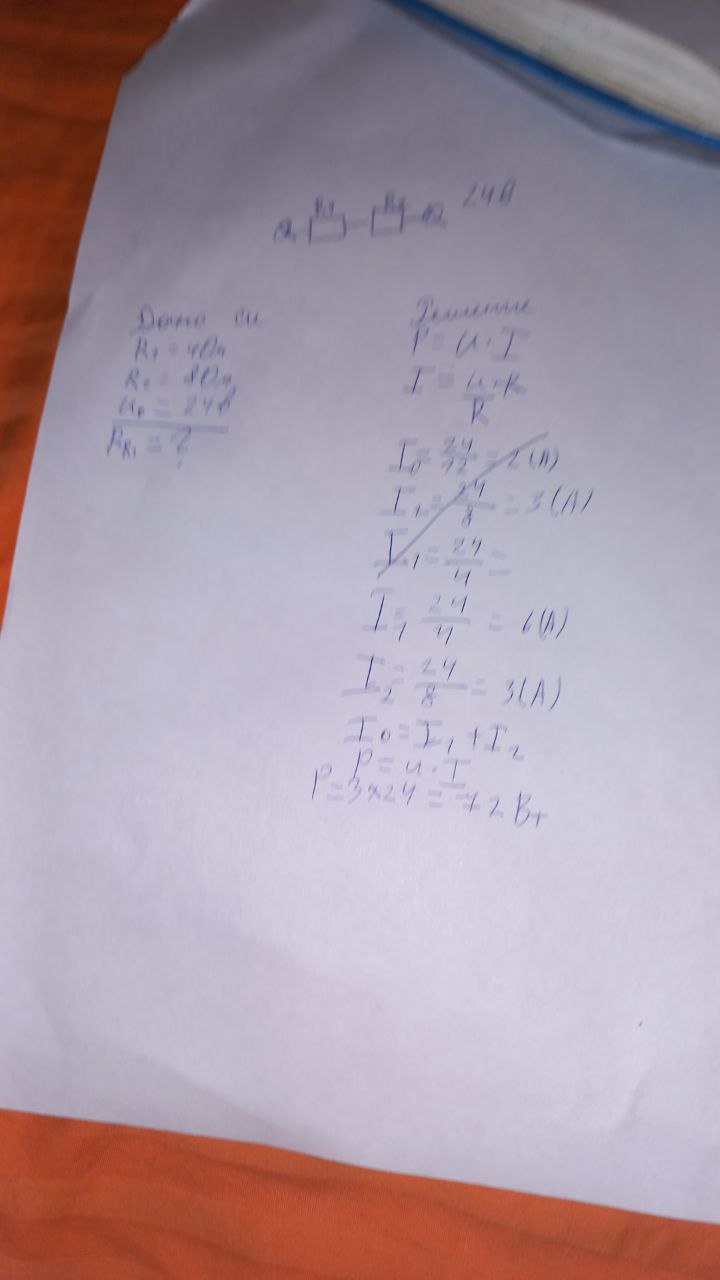 R1 R2 24В
Дано си
R₁ = 4Ом
R₂ = 8Ом
U₀ = 24В
= ?
Решение
P = U · I
I₀ = 24/12 = 2(А)
I₁ = 24/8 = 3(А)
I₁ = 24/4 =
I₁ 24/4 = 6(А)
I₂ = 24/8 = 3(А)
I₀ = I₁ + I₂
P = U · I
P = 3×24 = 72 Вт